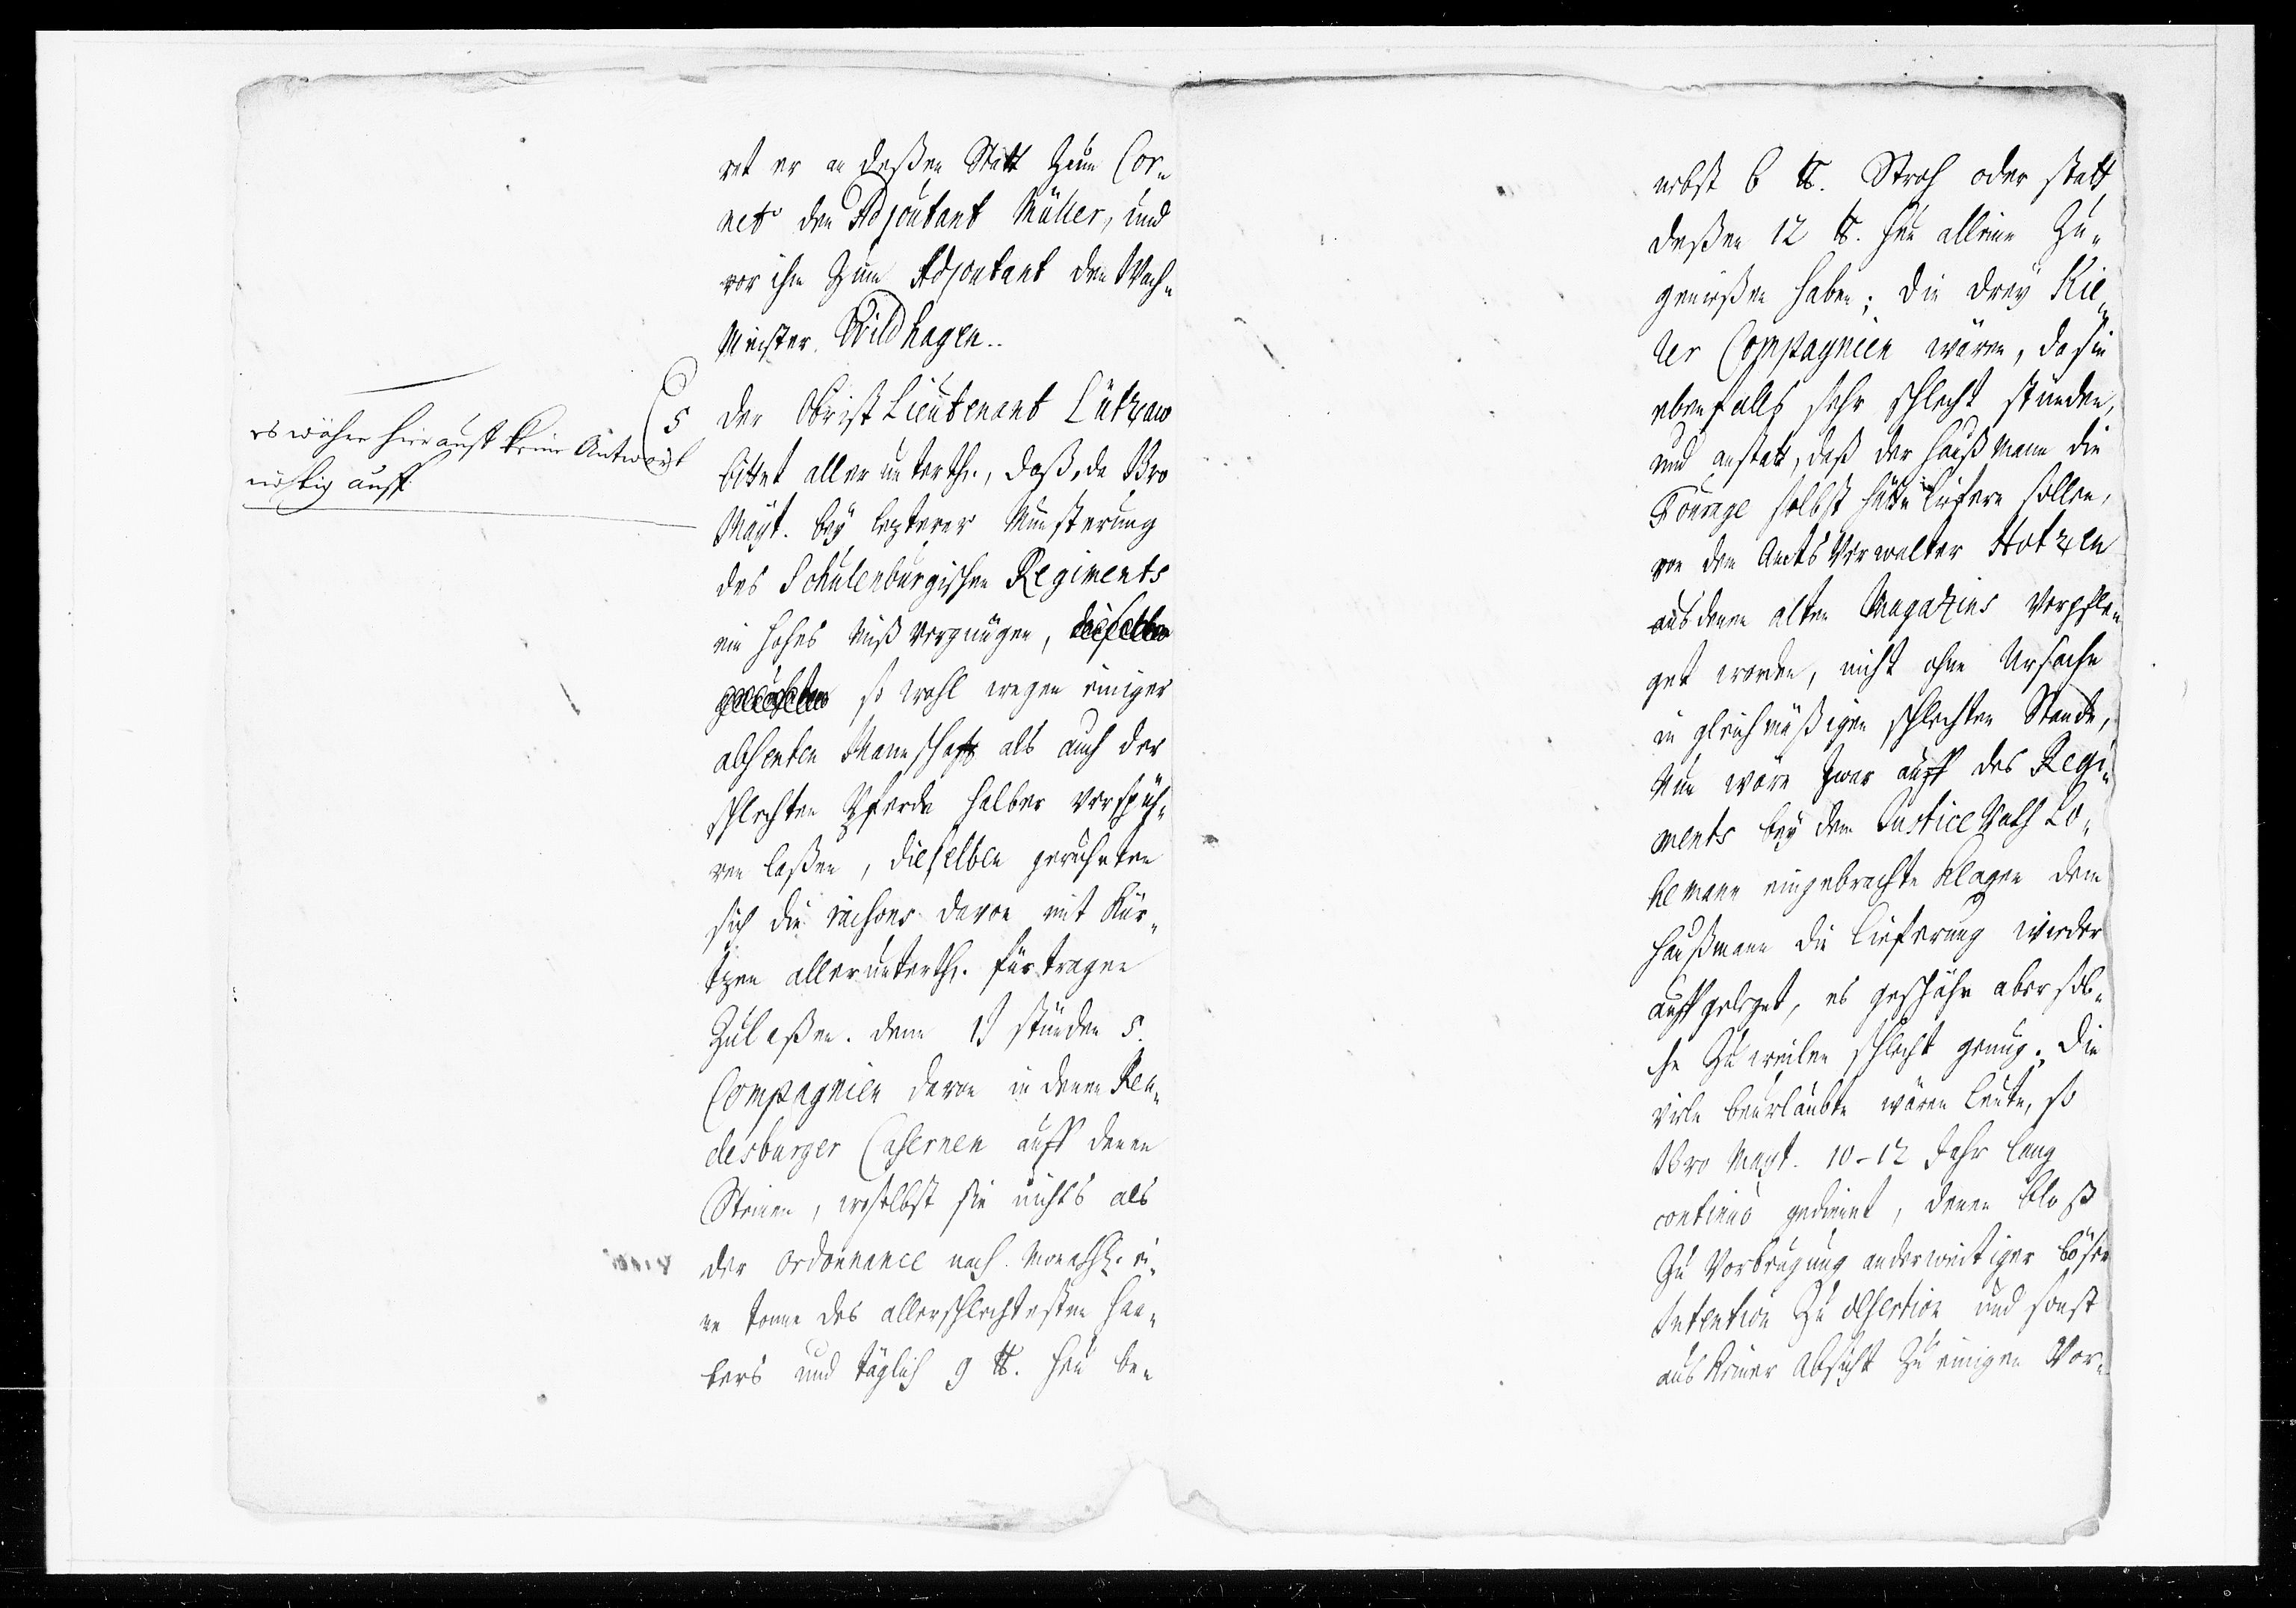 ret er an deßen Statt zum Cor-
net den Adjoutant Müller, und
vor ihn zum Adjoutant den Wach-
Meister Wildhagen..
5
der Obrist Lieutenant Lützow
bittet allerunterth., daß, da Ihro
Mayt. bey letzterer Munsterung
des Schulenburgischen Regiments
ein hohes Mißvergnügen, dieselben
geruheten so wohl wegen einiger
absenten Mannschafft als auch der
schlechten Pferde halber verspüh-
ren laßen, dieselben geruheten
sich die raisons davon mit Kür-
tzen allerunterth. fürtragen
zulaßen. denn 1) stünden 5.
Compagnien davon in denen Ren-
desburger Casernen auff denen
Steinen, woselbst sie nichts als
der ordonnance nach monathl. ei-
ne Tonne des allerschlechtesten Haa-
bers und täglich 9 ℔. Heu be-
es wäher hierauff keine Antwort
nöhtig auff
nebst 6 ℔. Stroh oder statt
deßen 12 ℔. Heu alleine zu-
genießen haben; die drey Kie-
ler Compagnien wären, da sie
ebenfalls sehr schlecht stünden,
und anstatt, daß der Haußmann die
Fourage selbst hätte liefern sollen,
von dem Amts Verwalter Hotzen
aus denen alten Magazins verpfle-
get worden, nicht ohne Ursache
in gleichmäßigen schlechten Stande,
Nun wäre zwar auff des Regi-
ments bey dem Justice Rath Lo-
hemann eingebrachte Klagen dem
Haußmann die Lieferung wieder
auffgeleget, es geschähe aber sol-
che zuweilen schlecht genug. Die
viele beurlaubte wären Leute, so
Ihro Mayt. 10-12 Jahr lang
continuo gedienet, denen bloß
zu Vorbeugung anderweitiger böser
Intention zu desertion und sonst
aus keiner Absicht zu einigen Vor-